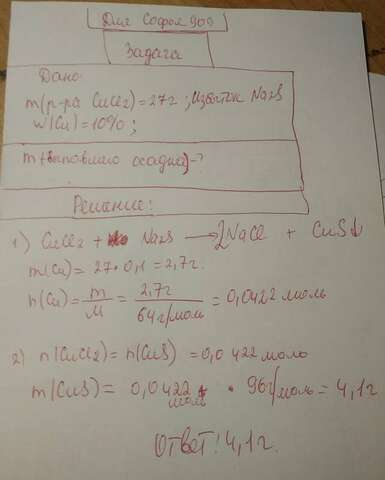 Для Софья 909
Задача
Дано:
m(р-ра CuCl2) = 27г ; избыток Na2S
W(Cu) = 10% ;
m(выпавшего осадка) - ?
Решение:
1) CuCl2 + Na2S → 2NaCl + CuS↓
m(Cu) = 27 · 0,1 = 2,7г.
n(Cu) = m/M = 2,7г/64г/моль = 0,0422 моль
2) n(CuCl2) = n(CuS) = 0,0422 моль
m(CuS) = 0,0422 моль · 96г/моль = 4,1г
Ответ: 4,1г.